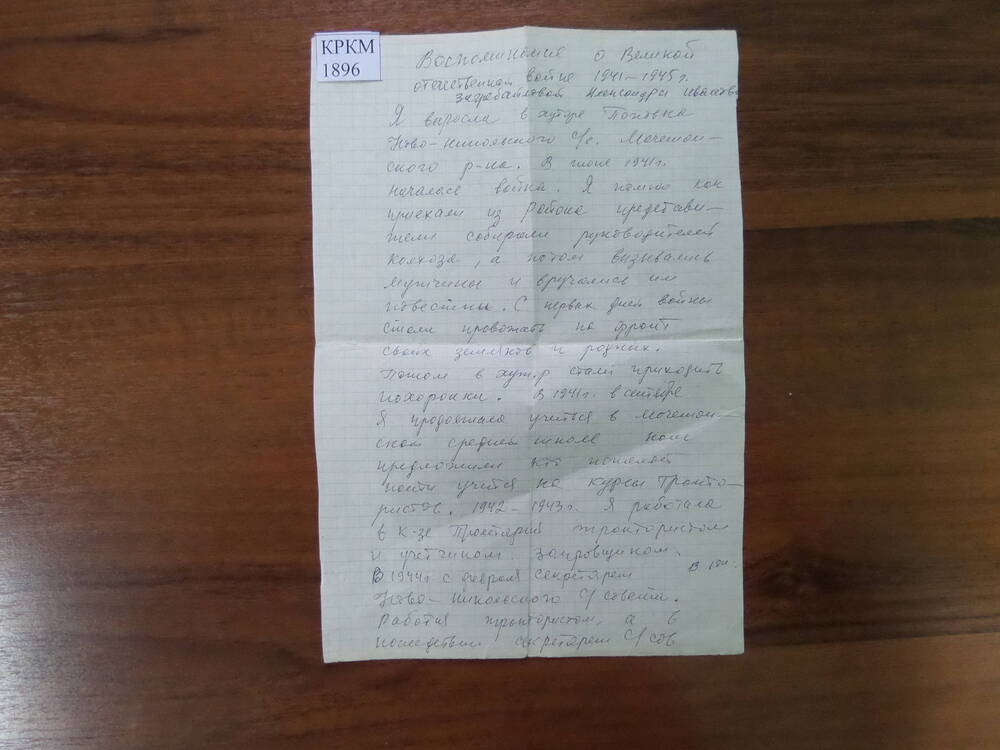 КРКМ
1896
Воспоминение о Великой
отечественной войне 1941-1945г.
Александры Ивановны
Я выросла в хуторе Поповка
Ново-Никольского С/с. Мачешан-
ского р-на. В июне 1941г.
началась война. Я помню как
приехали из района представи-
тели собирали руководителей
колхоза, а потом вызывались
мужчины и вручались им
повестки. С первых дней войны
стали провожать на фронт
своих земляков и родных.
Потом в хутор стали приходить
похоронки. В 1941г. в сентябре
Я продолжала учиться в Мачешан-
ской средней школе нам
предложили кто пожелает
пойти учится на курсы Тракто-
ристов. 1942-1943г. Я работала
в к-зе трактористом
и учетчиком заправщиком.
В 1944г с февраля секретарем
Ново-Никольского С/совета.
Работая трактористом, а в
последствии секретарем С/сов